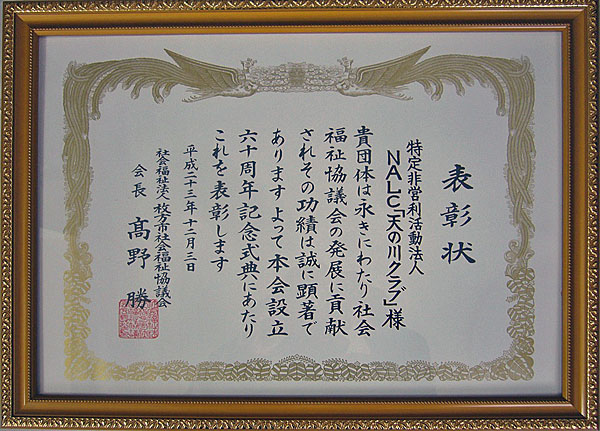 表彰状
特定非営利活動法人
NALC「天の川クラブ」様
貴団体は永きにわたり社会
福祉協議会の発展に貢献
されその功績は誠に顕著で
あります よって本会設立
六十周年記念式典にあたり
これを表彰します
平成二十三年十二月三日
社会福祉法人 枚方市社会福祉協議会
会長 髙野 勝